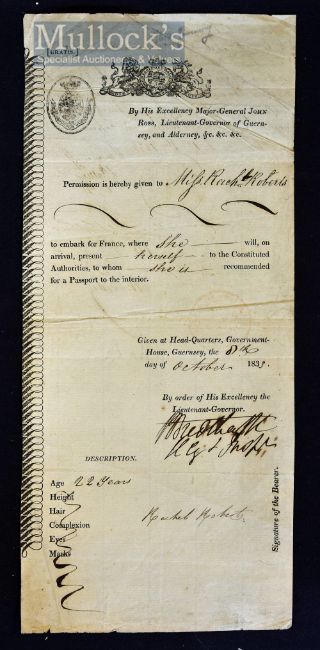 Mullock's
Specialist Auctioneers & Valuers
[GRATIS.]
By His Excellency Major-General JOHN
ROSS, Lieutenant-Governor of Guern-
sey, and Alderney, &c. &c. &c.
Permission is hereby given to a Miss Rach^l Roberts
to embark for France, where She will, on
arrival, present herself to the Constituted
Authorities, to whom She is recommended
for a Passport to the interior.
Given at Head-Quarters, Government-
House, Guernsey, the 8th
day of October 183
By order of His Excellency the
Lieutenant-Governor.
DESCRIPTION.
Age 22 Years
Height
Hair
Complexion
Eyes
Marks
Rachel Roberts
Signature of the Bearer.